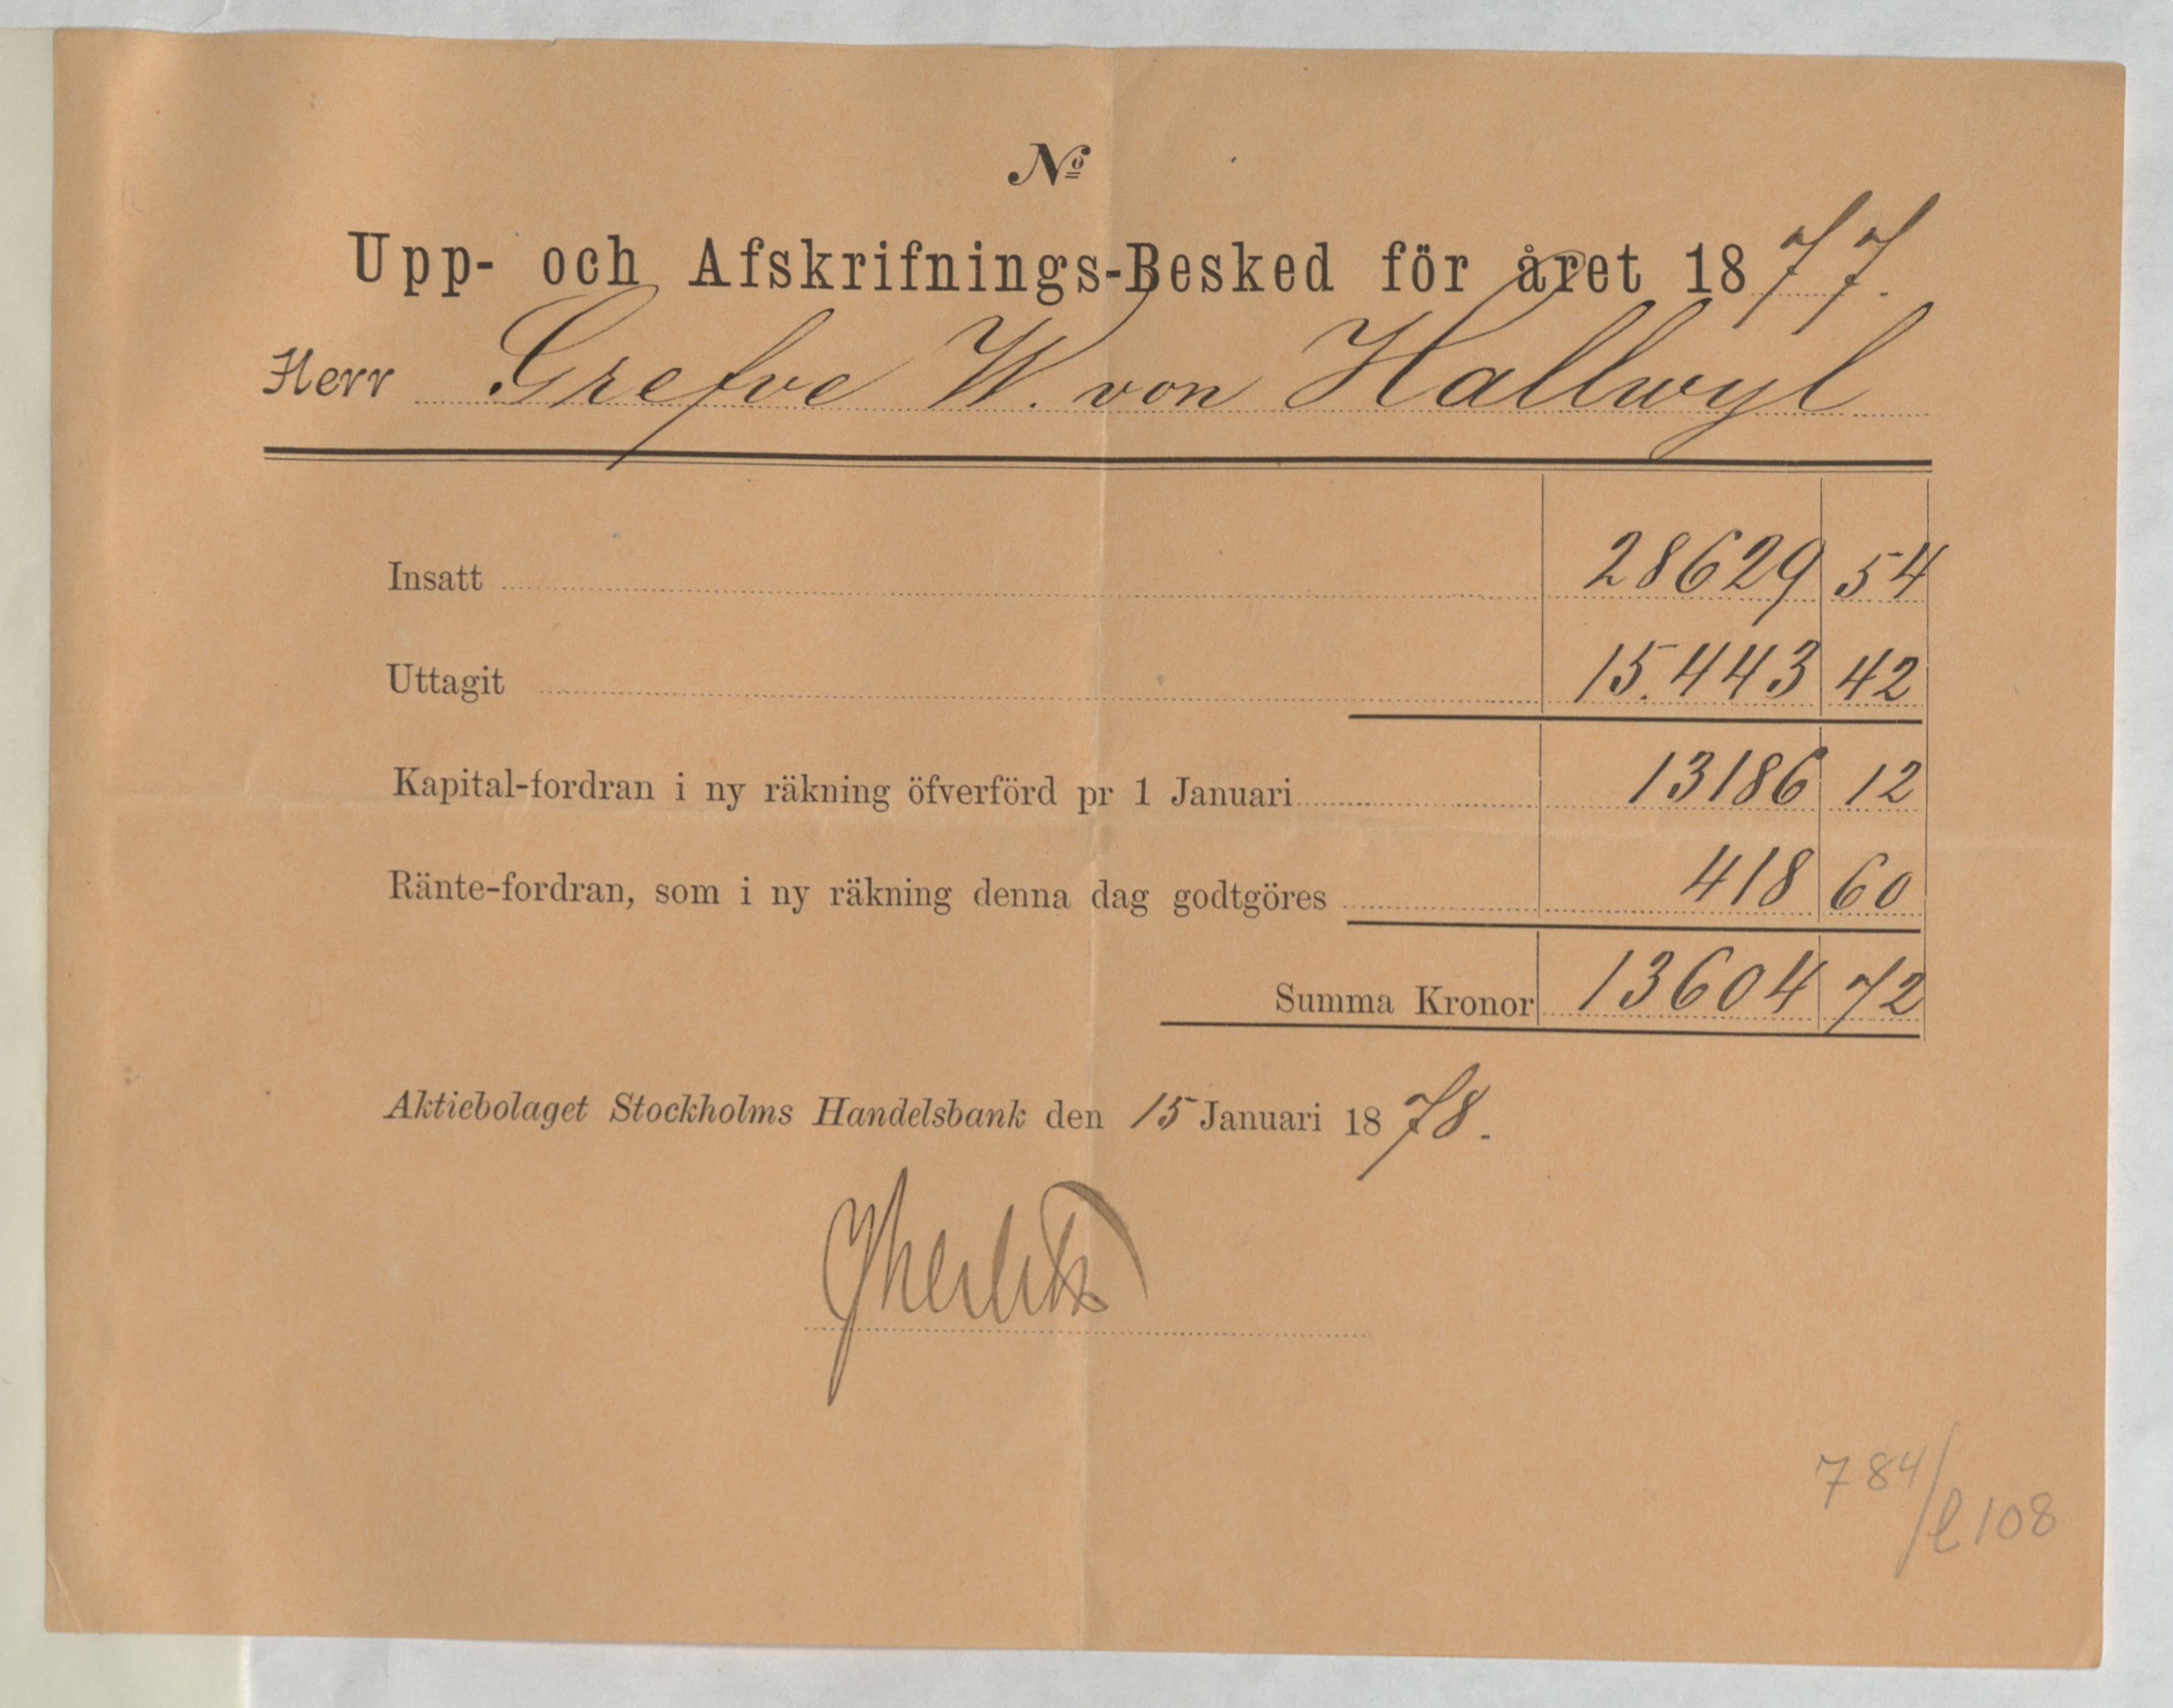 №
Upp- och Afskrifnings-Besked för året 1877.
Herr Grefve W. von Hallwyl
Insatt 28629 54
Uttagit 15.443 42
Kapital-fordran i ny räkning öfverförd pr 1 Januari 13186 12
Ränte-fordran, som i ny räkning denna dag godtgöres 418 60
Summa Kronor 13604 72
Aktiebolaget Stockholms Handelsbank den 15 Januari 1878.
784/l108